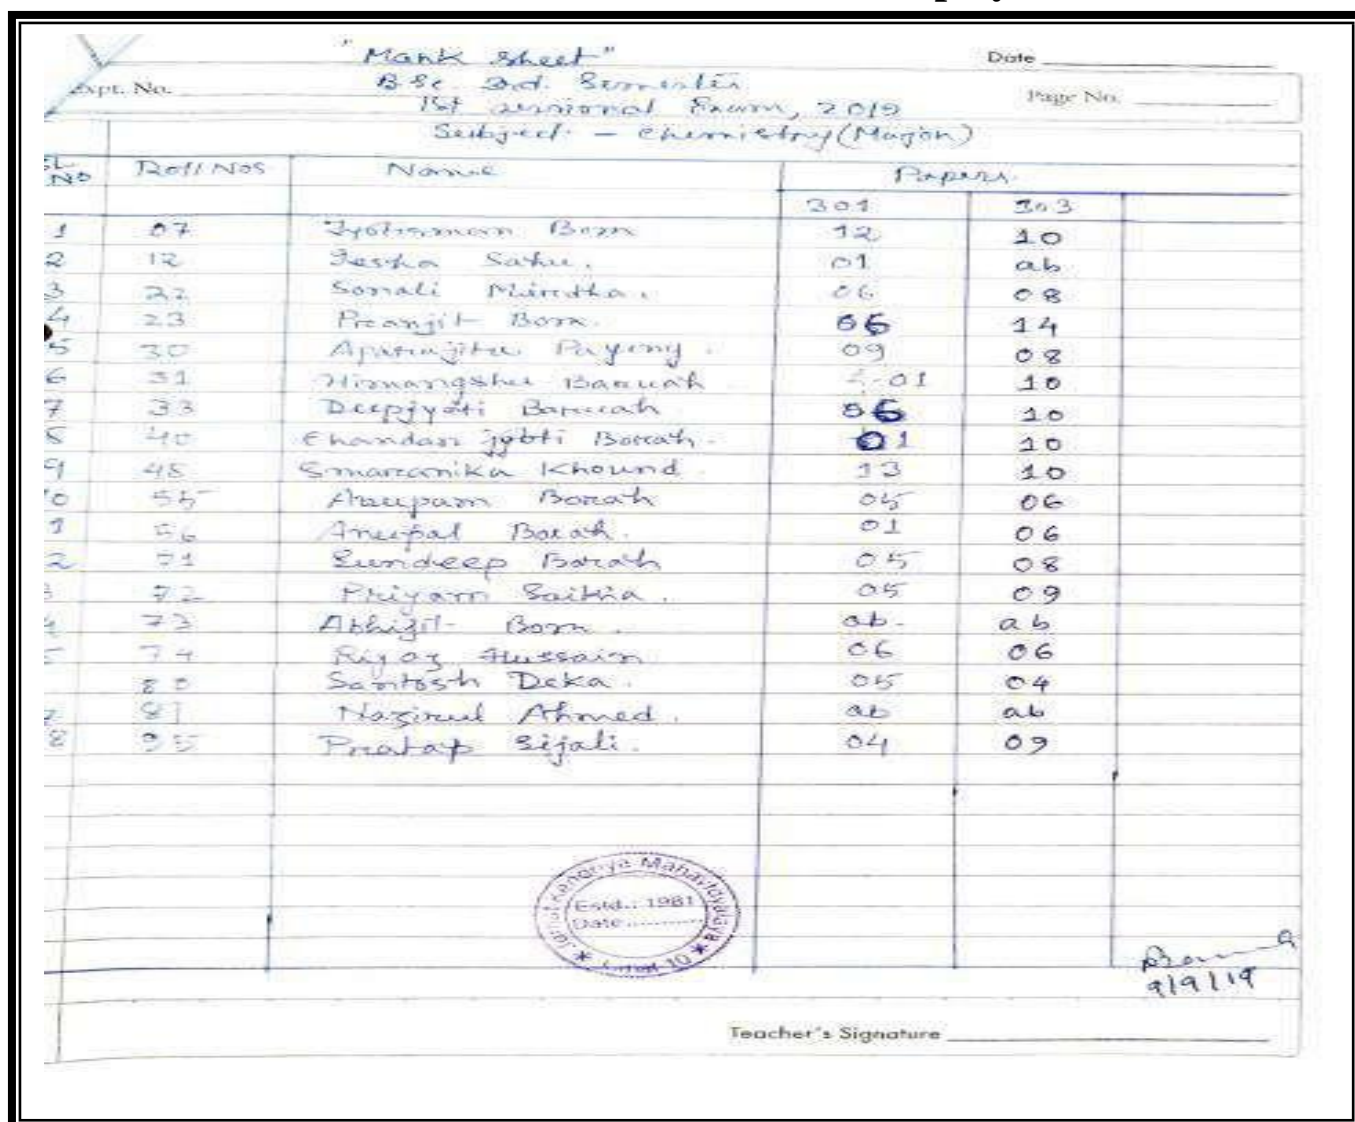 "Mark Sheet"
Date
Expt. No.
B.Sc. 3rd. Semester
Page No.
1st sessional Exam, 2019
Subject - Chemistry (Major)
SL NO Roll Nos Name Papers.
301 303
1 07 Jyotisman Bora 12 10
2 12 Sahu. 01 ab
3 22 Sonali Mirdha. 06 08
4 23 Preanjit Bora. 06 14
5 30 Aparajita Payeng. 09 08
6 31 Himangshu Baruah 01 10
7 33 Deepjyoti Baruah 06 10
8 40 Chandan jyoti Borah. 01 10
9 48 Smaranika Khound 13 10
10 55 Anupam Borah 05 06
1 56 Anupal Borah. 01 06
2 71 Sundeep Borah 05 08
3 72 Priyam Saikia. 05 09
4 73 Abhijit Bora. ab. ab
5 74 Riyaz Hussain 06 06
80 Santosh Deka. 05 04
7 81 Nazirul Ahmed. ab ab
8 95 Pratap Sijali. 04 09
Mahavidyalaya
Estd.: 1981
Date
9/9/19
Teacher's Signature